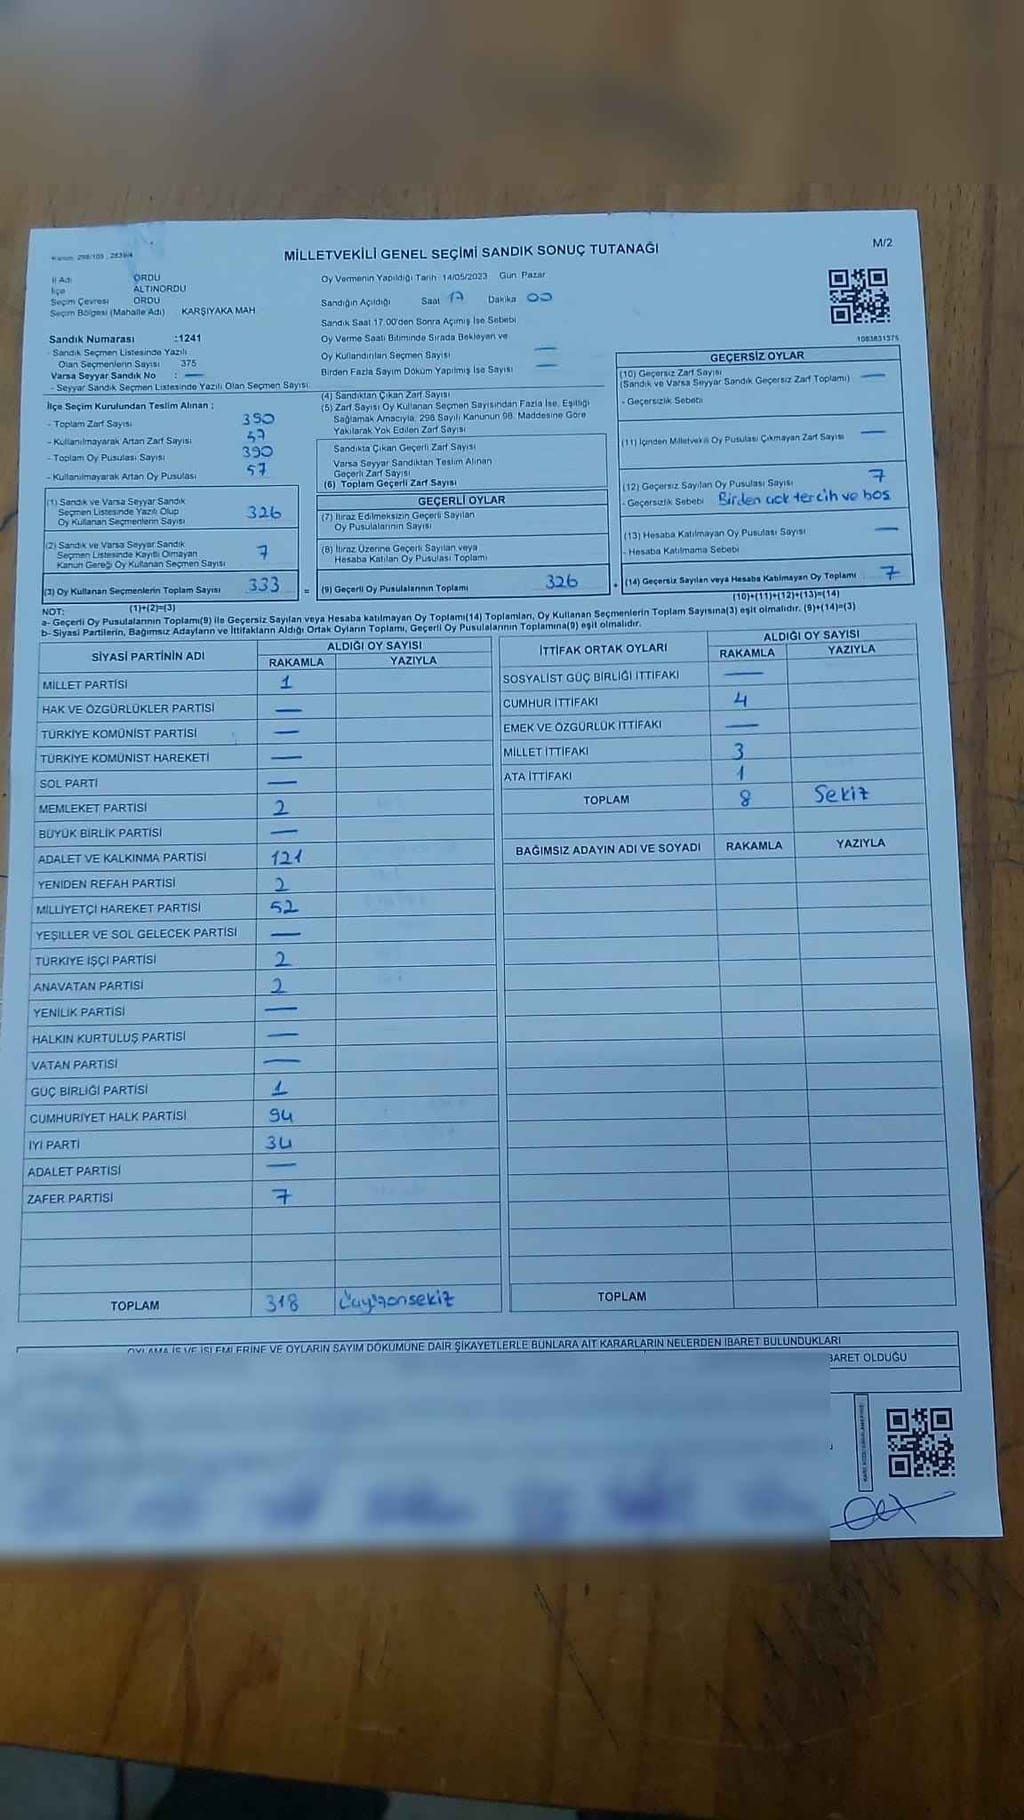 Kanun: 298/105 , 2839/4
MİLLETVEKİLİ GENEL SEÇİMİ SANDIK SONUÇ TUTANAĞI
M/2
İl Adı ORDU
İlçe ALTINORDU
Seçim Çevresi ORDU
Seçim Bölgesi (Mahalle Adı) KARŞIYAKA MAH
Sandık Numarası :1241
- Sandık Seçmen Listesinde Yazılı
Olan Seçmenlerin Sayısı 375
Varsa Seyyar Sandık No : —
- Seyyar Sandık Seçmen Listesinde Yazılı Olan Seçmen Sayısı
Oy Vermenin Yapıldığı Tarih 14/05/2023 Gün Pazar
Sandığın Açıldığı Saat 17 Dakika 00
Sandık Saat 17.00'den Sonra Açımış İse Sebebi
Oy Verme Saati Bitiminde Sırada Bekleyen ve
Oy Kullandırılan Seçmen Sayısı —
Birden Fazla Sayım Döküm Yapılmış İse Sayısı —
1083831575
İlçe Seçim Kurulundan Teslim Alınan ;
- Toplam Zarf Sayısı 390
- Kullanılmayarak Artan Zarf Sayısı 57
- Toplam Oy Pusulası Sayısı 390
- Kullanılmayarak Artan Oy Pusulası 57
(1) Sandık ve Varsa Seyyar Sandık
Seçmen Listesinde Yazılı Olup
Oy Kullanan Seçmenlerin Sayısı 326
(2) Sandık ve Varsa Seyyar Sandık
Seçmen Listesinde Kayıtlı Olmayan
Kanun Gereği Oy Kullanan Seçmen Sayısı 7
(3) Oy Kullanan Seçmenlerin Toplam Sayısı 333 =
(1)+(2)=(3)
(4) Sandıktan Çıkan Zarf Sayısı
(5) Zarf Sayısı Oy Kullanan Seçmen Sayısından Fazla İse, Eşitliği
Sağlamak Amacıyla, 298 Sayılı Kanunun 98. Maddesine Göre
Yakılarak Yok Edilen Zarf Sayısı
Sandıkta Çıkan Geçerli Zarf Sayısı
Varsa Seyyar Sandıktan Teslim Alınan
Geçerli Zarf Sayısı
(6) Toplam Geçerli Zarf Sayısı
GEÇERLİ OYLAR
(7) İtiraz Edilmeksizin Geçerli Sayılan
Oy Pusulalarının Sayısı
(8) İtiraz Üzerine Geçerli Sayılan veya
Hesaba Katılan Oy Pusulası Toplamı
(9) Geçerli Oy Pusulalarının Toplamı 326 +
GEÇERSİZ OYLAR
(10) Geçersiz Zarf Sayısı
(Sandık ve Varsa Seyyar Sandık Geçersiz Zarf Toplamı) —
- Geçersizlik Sebebi
(11) İçinden Milletvekili Oy Pusulası Çıkmayan Zarf Sayısı —
(12) Geçersiz Sayılan Oy Pusulası Sayısı 7
- Geçersizlik Sebebi Birden çok tercih ve boş
(13) Hesaba Katılmayan Oy Pusulası Sayısı —
- Hesaba Katılmama Sebebi
(14) Geçersiz Sayılan veya Hesaba Katılmayan Oy Toplamı 7
(10)+(11)+(12)+(13)=(14)
NOT:
a- Geçerli Oy Pusulalarının Toplamı(9) ile Geçersiz Sayılan veya Hesaba katılmayan Oy Toplamı(14) Toplamları, Oy Kullanan Seçmenlerin Toplam Sayısına(3) eşit olmalıdır. (9)+(14)=(3)
b- Siyasi Partilerin, Bağımsız Adayların ve İttifakların Aldığı Ortak Oyların Toplamı, Geçerli Oy Pusulalarının Toplamına(9) eşit olmalıdır.
SİYASİ PARTİNİN ADI ALDIĞI OY SAYISI
RAKAMLA YAZIYLA
MİLLET PARTİSİ 1
HAK VE ÖZGÜRLÜKLER PARTİSİ —
TÜRKİYE KOMÜNİST PARTİSİ —
TÜRKİYE KOMÜNİST HAREKETİ —
SOL PARTİ —
MEMLEKET PARTİSİ 2
BÜYÜK BİRLİK PARTİSİ —
ADALET VE KALKINMA PARTİSİ 121
YENİDEN REFAH PARTİSİ 2
MİLLİYETÇİ HAREKET PARTİSİ 52
YEŞİLLER VE SOL GELECEK PARTİSİ —
TÜRKİYE İŞÇİ PARTİSİ 2
ANAVATAN PARTİSİ 2
YENİLİK PARTİSİ —
HALKIN KURTULUŞ PARTİSİ —
VATAN PARTİSİ —
GÜÇ BİRLİĞİ PARTİSİ 1
CUMHURİYET HALK PARTİSİ 94
İYİ PARTİ 34
ADALET PARTİSİ —
ZAFER PARTİSİ 7
TOPLAM 318 Üçyüzonsekiz
İTTİFAK ORTAK OYLARI ALDIĞI OY SAYISI
RAKAMLA YAZIYLA
SOSYALİST GÜÇ BİRLİĞİ İTTİFAKI —
CUMHUR İTTİFAKI 4
EMEK VE ÖZGÜRLÜK İTTİFAKI —
MİLLET İTTİFAKI 3
ATA İTTİFAKI 1
TOPLAM 8 Sekiz
BAĞIMSIZ ADAYIN ADI VE SOYADI RAKAMLA YAZIYLA
TOPLAM
OYLAMA İŞ VE İŞLEMLERİNE VE OYLARIN SAYIM DÖKÜMÜNE DAİR ŞİKAYETLERLE BUNLARA AİT KARARLARIN NELERDEN İBARET BULUNDUKLARI
BARET OLDUĞU